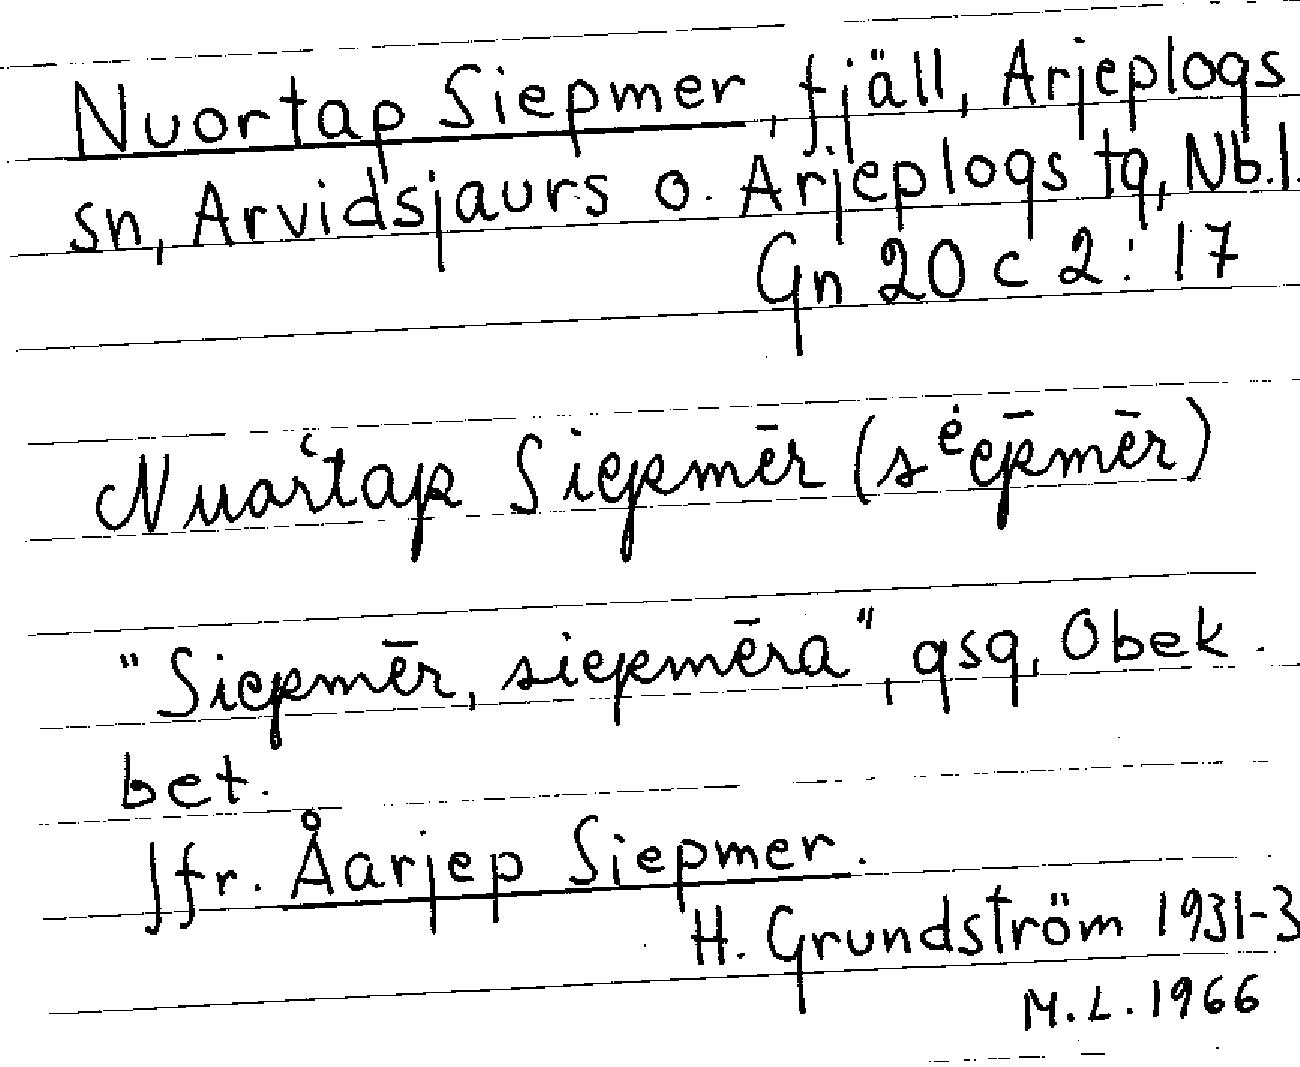 Nuortap Siepmer, fjäll, Arjeplogs
sn, Arvidsjaurs o. Arjeplogs tg, Nb.l.
Gn 20 c 2:17
Nuaŕtap Siepmēr (sėep̄mēr)
"Siepmēr, siepmēra", gsg, Obek.
bet.
Jfr. Åarjep Siepmer.
H. Grundström 1931-3
M.L. 1966